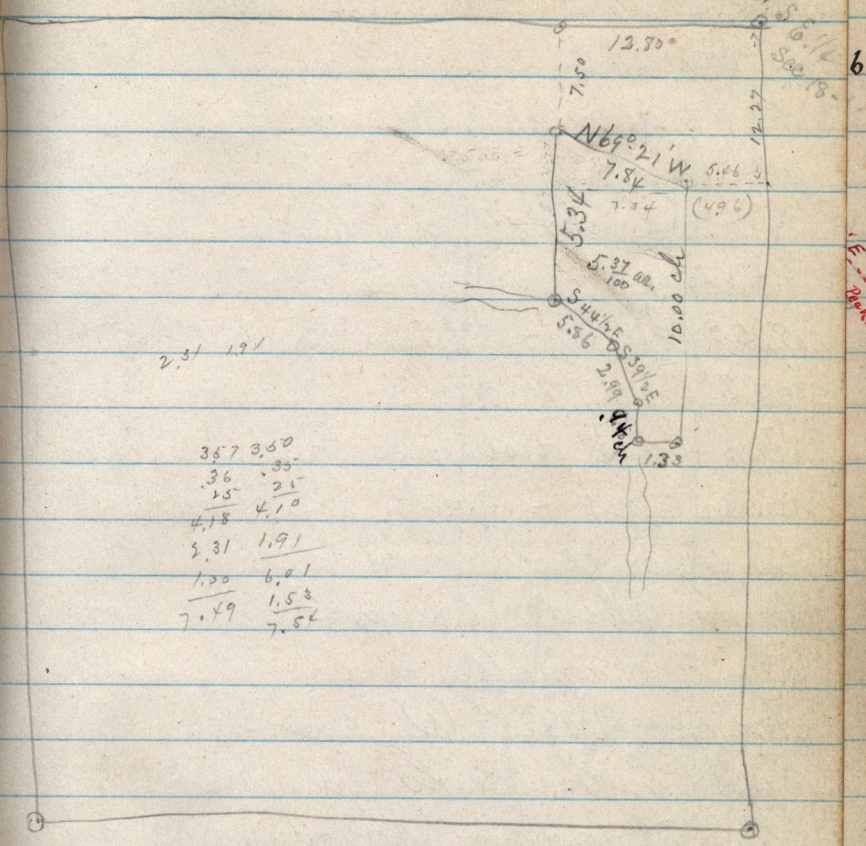 S E 1/4
Sec 18-
12.80
6
7.50
12.27
N69°.21'W
7.84
5.46
7.34
(496)
5.34
5.37/100 ac.
10.00 ch
S 44 1/2 E
5.86
S 39 1/2 E
2.99
.94 ch
1.33
2.31 1.91
3.57 3.50
.36 .35
25 25
4.18 4.10
2.31 1.91
1.00 6.01
7.49 1.53
7.54